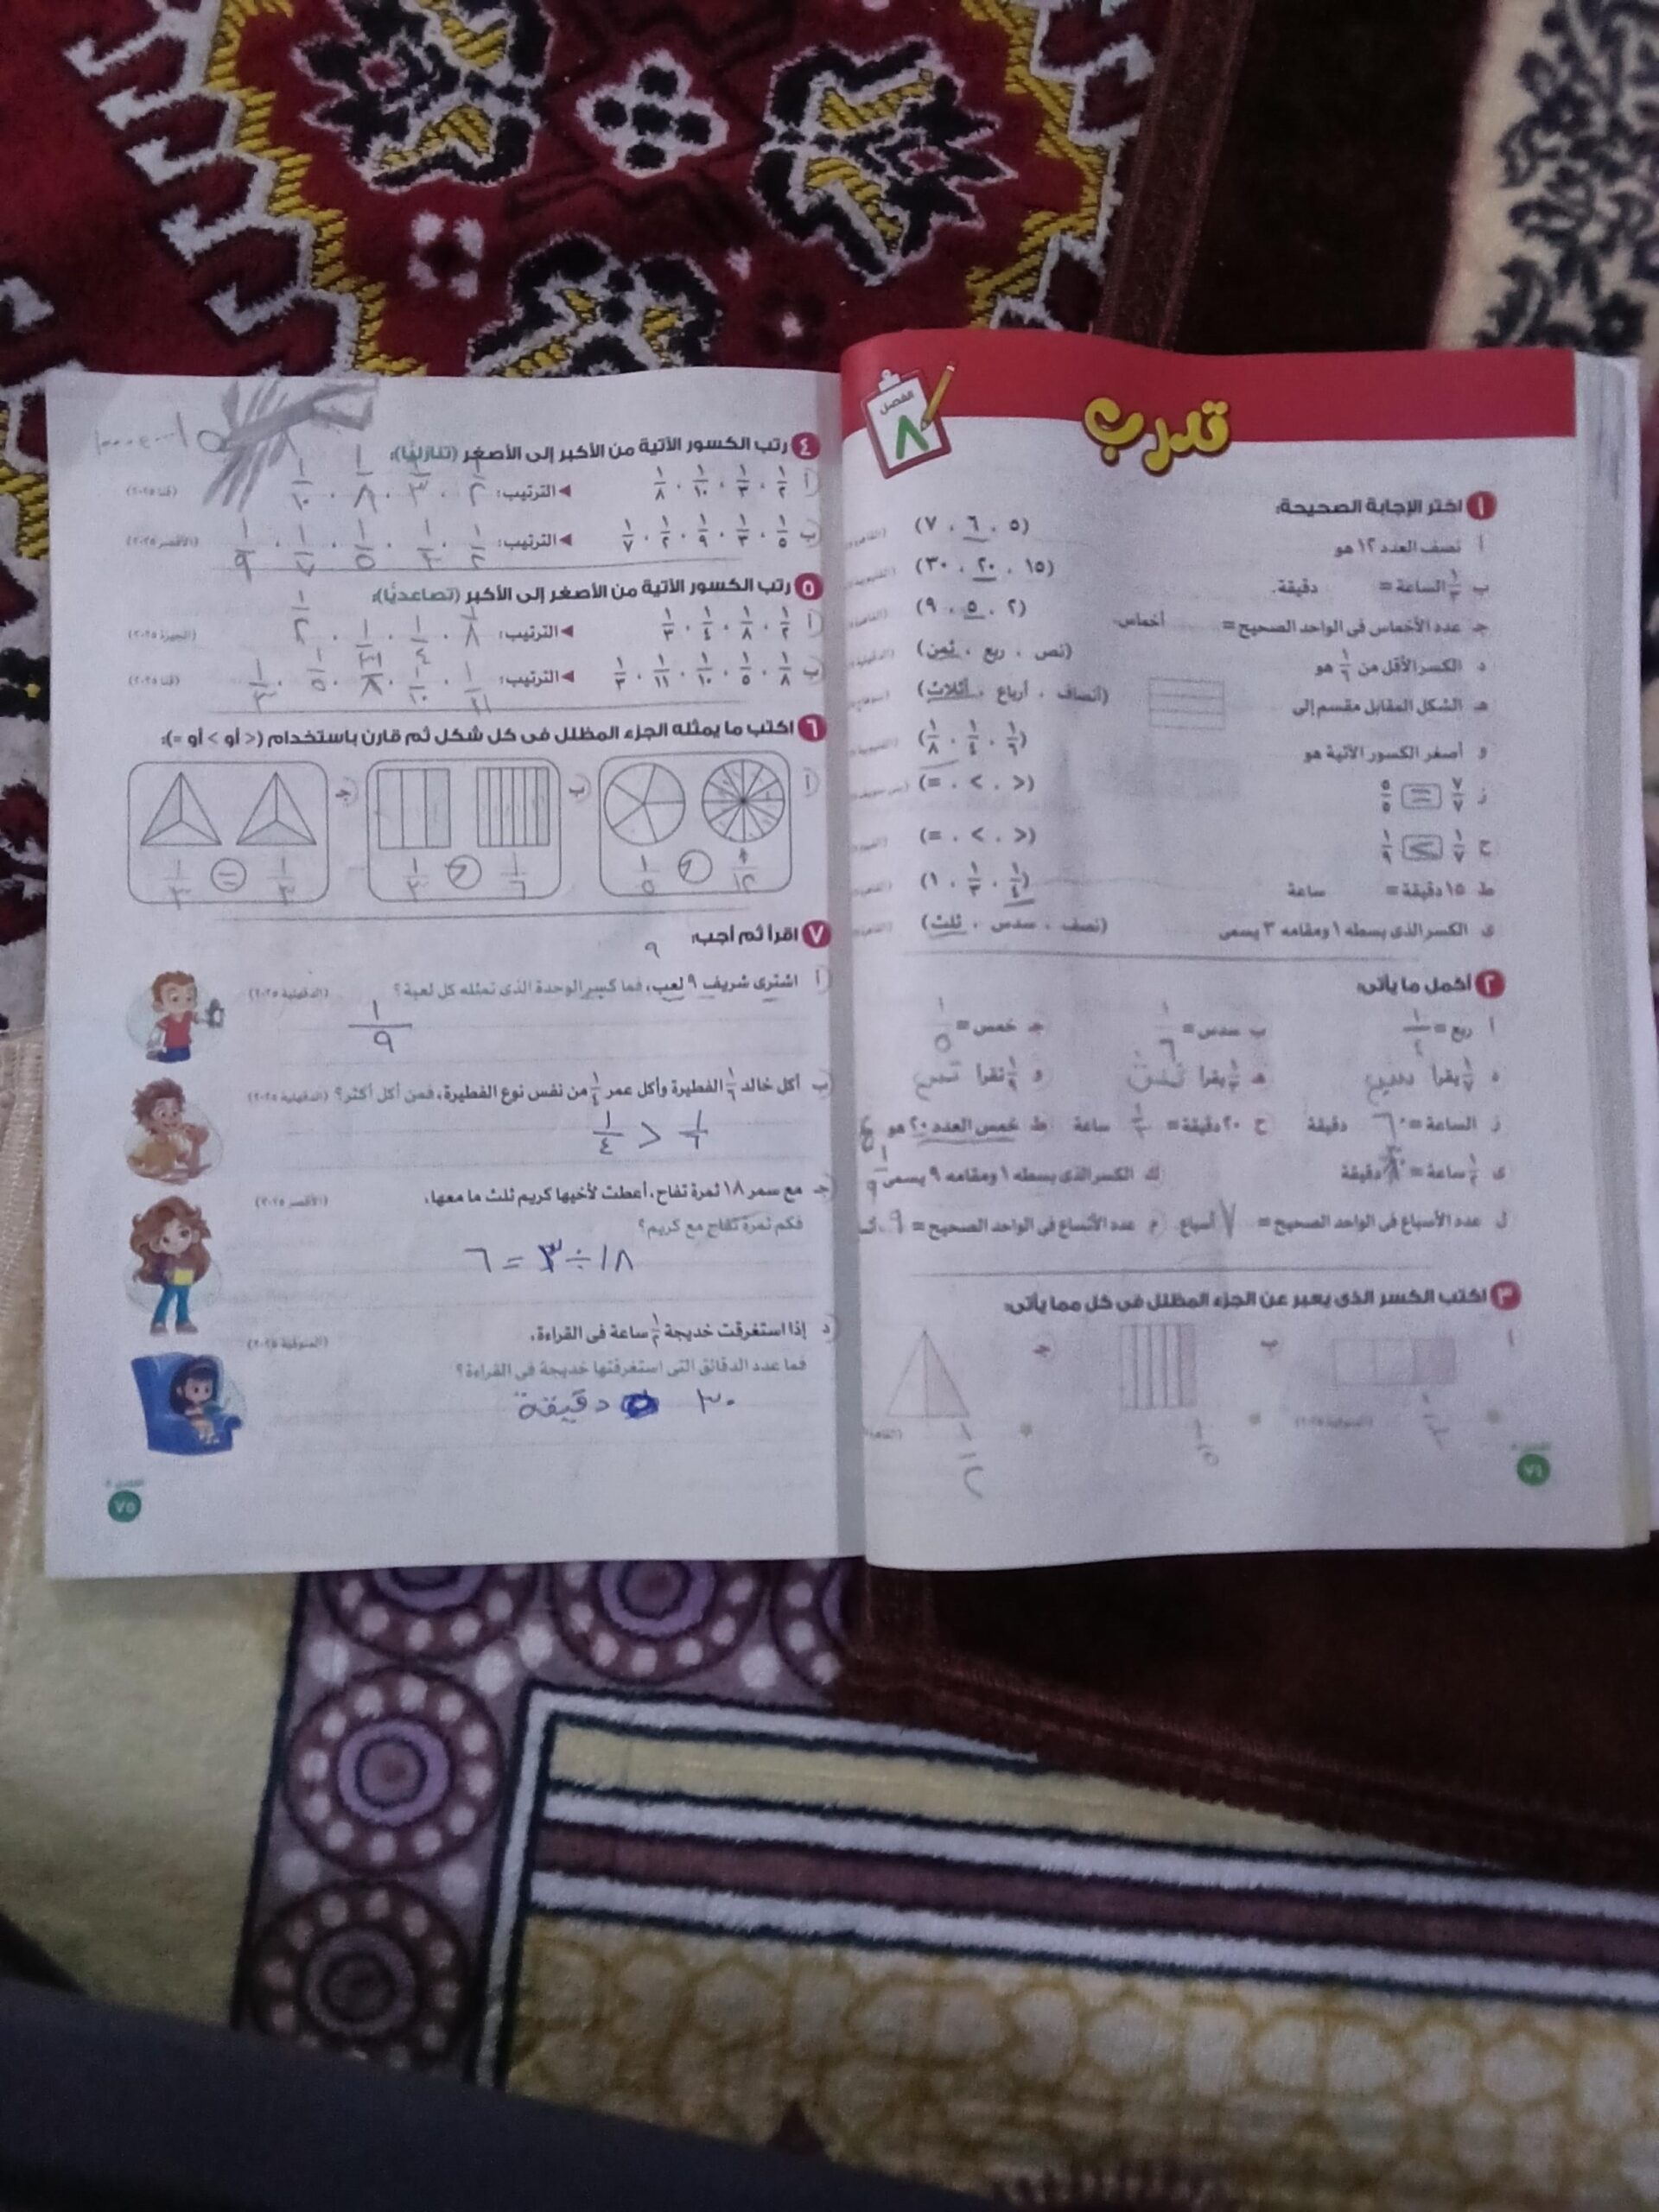 تدرب
الفصل ٨
١ اختر الإجابة الصحيحة:
أ نصف العدد ١٢ هو (٥ ، ٦ ، ٧)
ب ١/٣ الساعة = دقيقة. (١٥ ، ٢٠ ، ٣٠)
جـ عدد الأخماس فى الواحد الصحيح = أخماس. (٢ ، ٥ ، ٩)
د الكسر الأقل من ١/٦ هو (نص ، ربع ، ثمن)
هـ الشكل المقابل مقسم إلى (أنصاف ، أرباع ، أثلاث)
و أصغر الكسور الآتية هو (١/٦ ، ١/٤ ، ١/٨)
ز ٧/٧ = ٥/٥ (< ، > ، =)
ح ١/٧ ١/٩ (< ، > ، =)
ط ١٥ دقيقة = ساعة (١/٤ ، ١/٣ ، ١)
ى الكسر الذى بسطه ١ ومقامه ٣ يسمى (نصف ، سدس ، ثلث)
٢ أكمل ما يأتى:
أ ربع = ١/٤ ب سدس = ١/٦ جـ خمس = ١/٥
ز الساعة = ٦٠ دقيقة ح ٢٠ دقيقة = ١/٣ ساعة ط خمس العدد ٢٠ هو ٤
ى ١/٢ ساعة = دقيقة ك الكسر الذى بسطه ١ ومقامه ٩ يسمى ١/٩
ل عدد الأسباع فى الواحد الصحيح = ٧ أسباع. م عدد الأتساع فى الواحد الصحيح = ٩
٣ اكتب الكسر الذى يعبر عن الجزء المظلل فى كل مما يأتى:
أ ب جـ
١/٥ ١/٢
٧٤
٤ رتب الكسور الآتية من الأكبر إلى الأصغر (تنازليًا):
أ ١/٢ ، ١/٣ ، ١/١٠ ، ١/٨ الترتيب: ١/٢ ، ١/٣ ، ١/٨ ، ١/١٠ (قنا ٢٠٢٥)
ب ١/٥ ، ١/٣ ، ١/٩ ، ١/٢ ، ١/٧ الترتيب: ١/٢ ، ١/٣ ، ١/٥ ، ١/٧ ، ١/٩ (الأقصر ٢٠٢٥)
٥ رتب الكسور الآتية من الأصغر إلى الأكبر (تصاعديًا):
أ ١/٢ ، ١/٨ ، ١/٤ ، ١/٣ الترتيب: ١/٨ ، ١/٤ ، ١/٣ ، ١/٢ (الجيزة ٢٠٢٥)
ب ١/٨ ، ١/٥ ، ١/١٠ ، ١/١١ ، ١/٣ الترتيب: ١/١١ ، ١/١٠ ، ١/٨ ، ١/٥ ، ١/٣ (قنا ٢٠٢٥)
٦ اكتب ما يمثله الجزء المظلل فى كل شكل ثم قارن باستخدام (< أو > أو =):
أ ١/١٢ ١/٥ ب ١/٦ ١/٣ جـ ١/٣ = ١/٣
٧ اقرأ ثم أجب:
٩
أ اشترى شريف ٩ لعب، فما كسر الوحدة الذى تمثله كل لعبة؟ (الدقهلية ٢٠٢٥)
١/٩
ب أكل خالد ١/٦ الفطيرة وأكل عمر ١/٤ من نفس نوع الفطيرة، فمن أكل أكثر؟ (الدقهلية ٢٠٢٥)
١/٤ > ١/٦
جـ مع سمر ١٨ ثمرة تفاح، أعطت لأخيها كريم ثلث ما معها،
(الأقصر ٢٠٢٥)
فكم ثمرة تفاح مع كريم؟
١٨ ÷ ٣ = ٦
د إذا استغرقت خديجة ١/٢ ساعة فى القراءة،
(المنوفية ٢٠٢٥)
فما عدد الدقائق التى استغرقتها خديجة فى القراءة؟
٣٠ دقيقة
٧٥